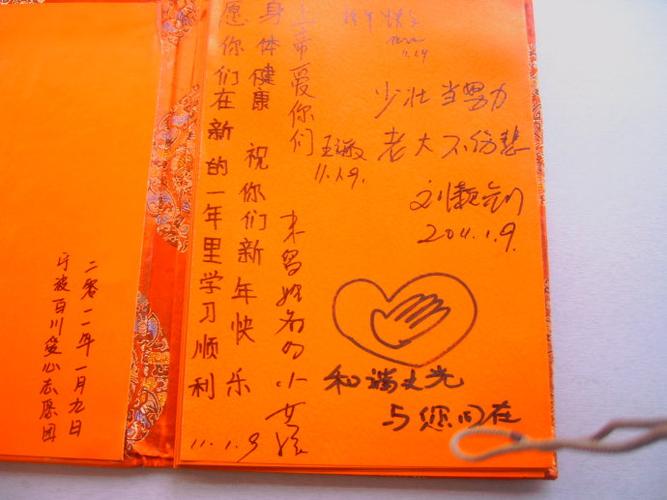 二零一一年一月九日
宁波百川爱心志愿团
上帝爱你们
未留姓名的小女孩
身体健康 祝你们新年快乐
愿你们在新的一年里学习顺利
11.1.9
新年快乐
11.1.9
少壮当努力
老大不伤悲
11.1.9.
2011.1.9.
和谐之光
与您同在